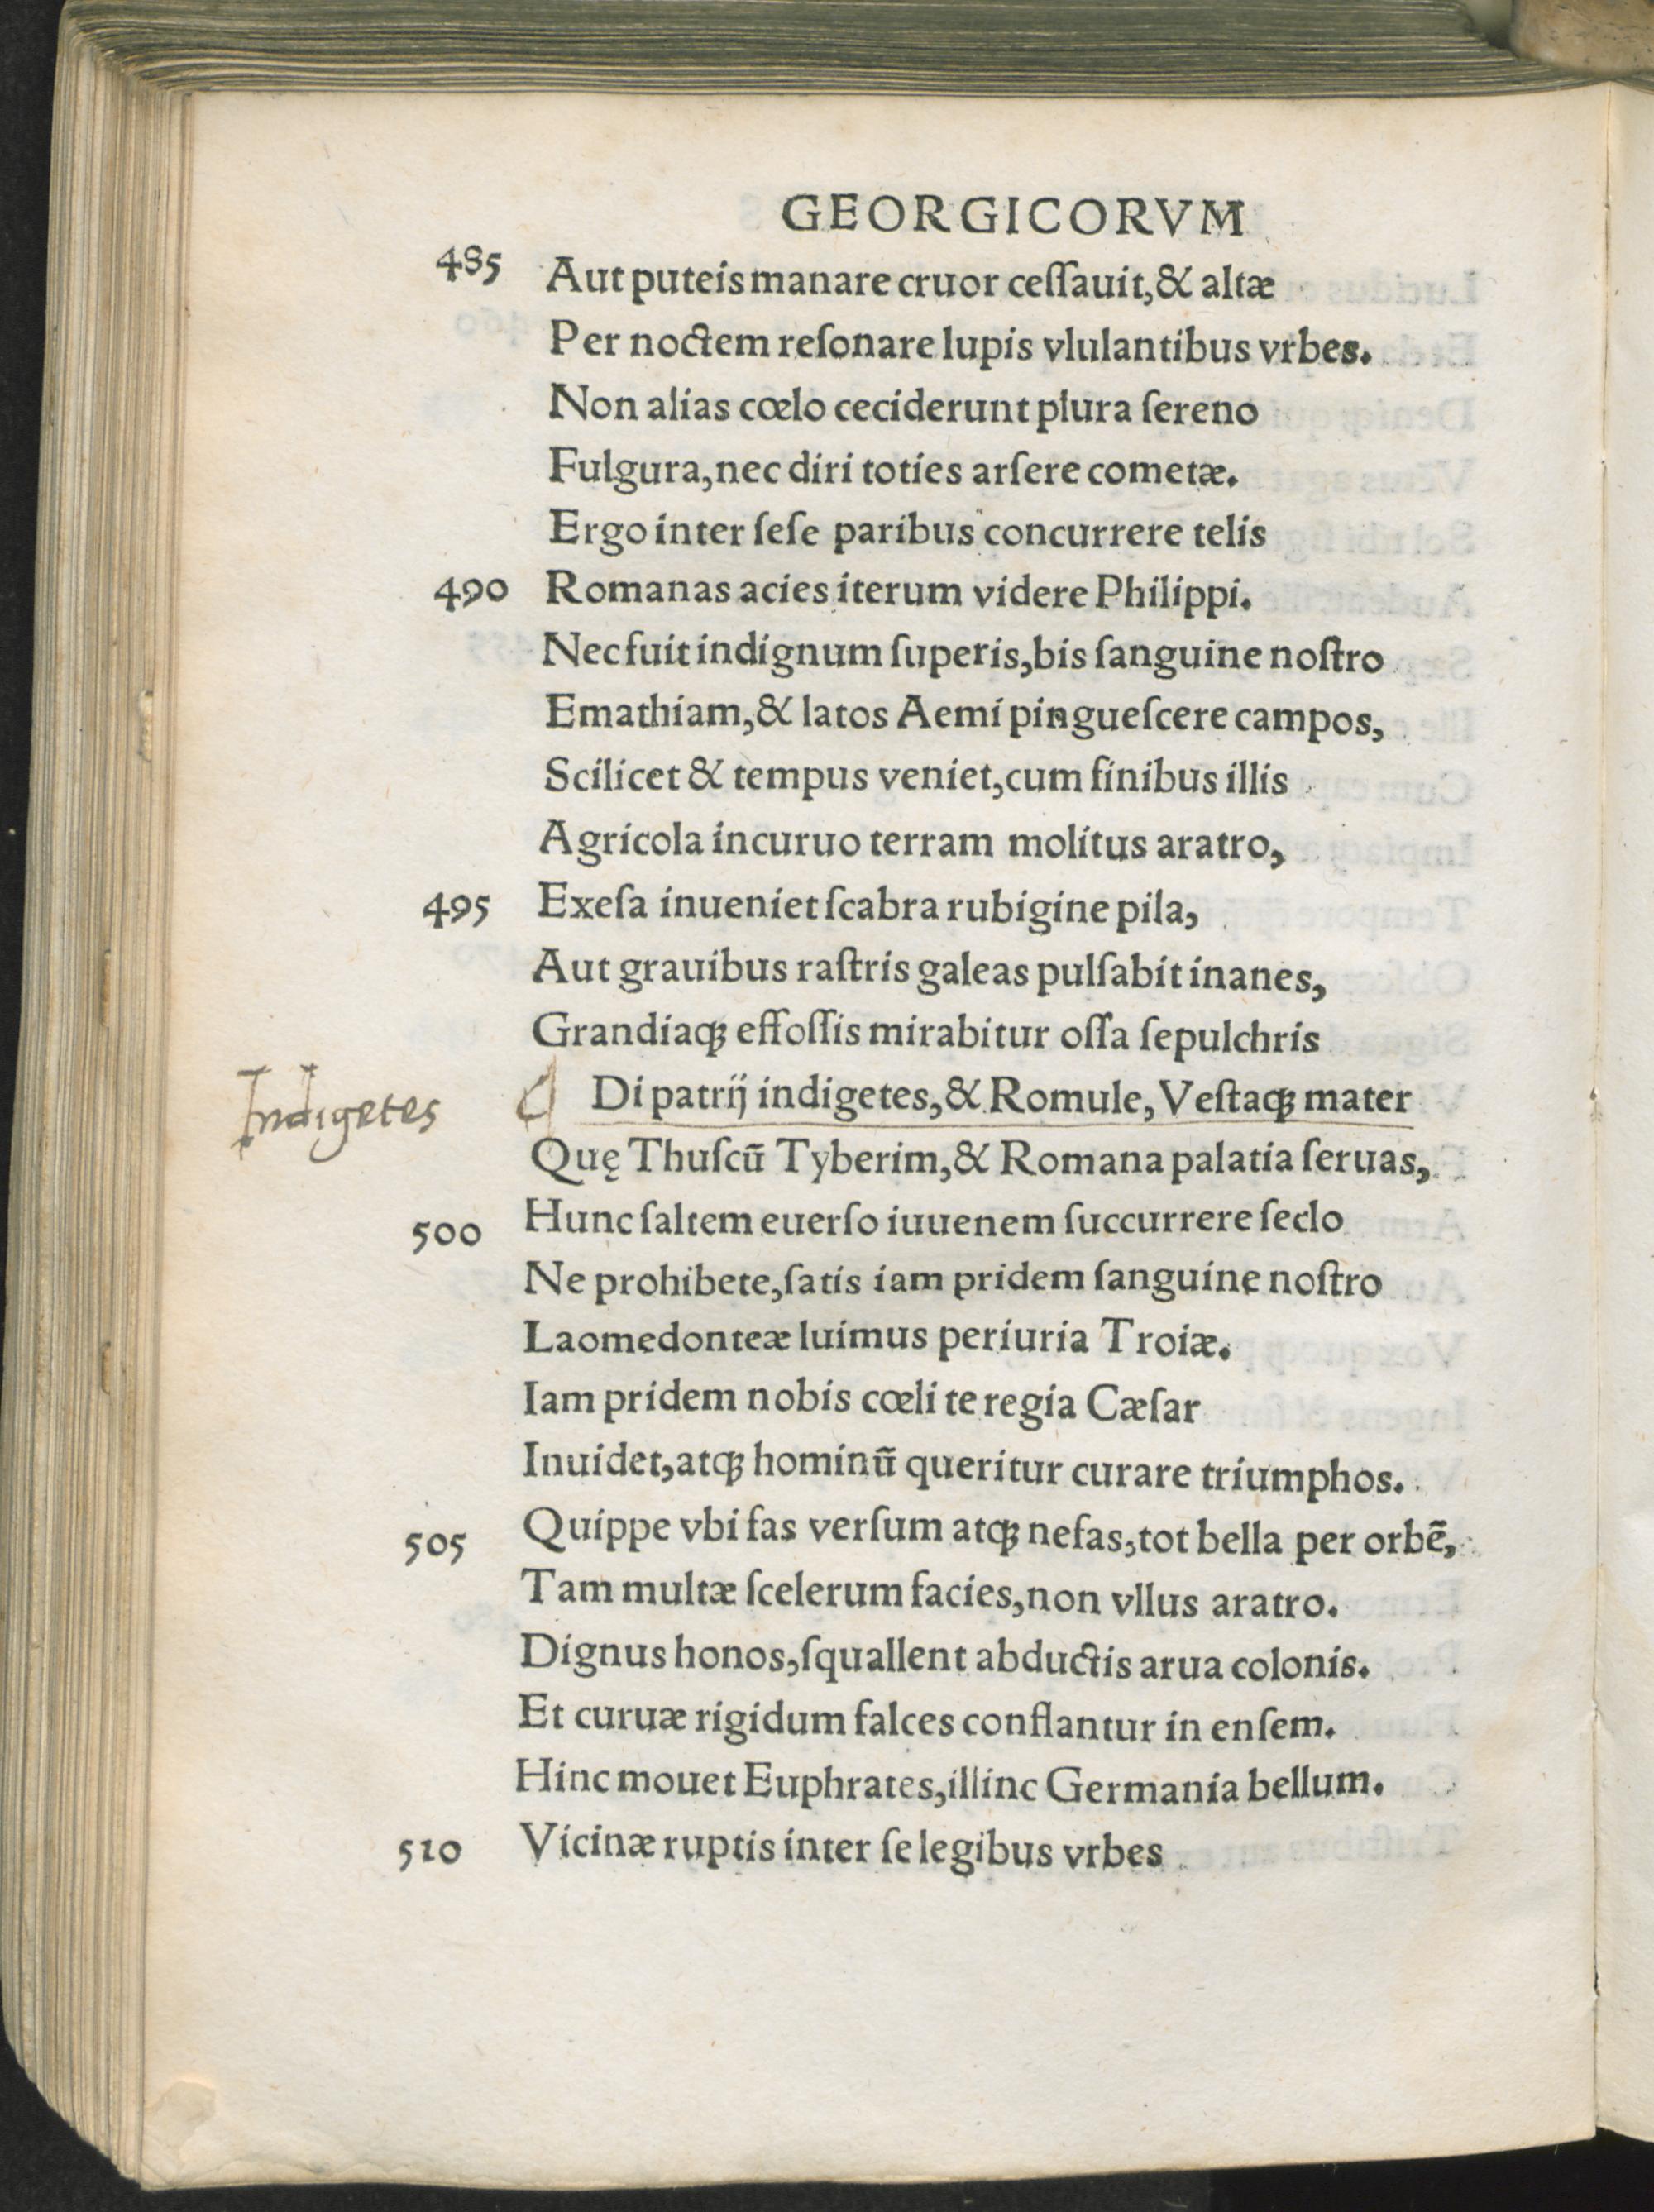 GEORGICORVM
485 Aut puteis manare cruor ceſſauit, & altæ
Per noctem reſonare lupis vlulantibus vrbes.
Non alias cœlo ceciderunt plura ſereno
Fulgura, nec diri toties arſere cometæ.
Ergo inter ſeſe paribus concurrere telis
490 Romanas acies iterum videre Philippi.
Nec fuit indignum ſuperis, bis ſanguine noſtro
Emathiam, & latos Aemi pingueſcere campos,
Scilicet & tempus veniet, cum finibus illis
Agricola incuruo terram molitus aratro,
495 Exeſa inueniet ſcabra rubigine pila,
Aut grauibus raſtris galeas pulſabit inanes,
Grandiaqꝫ effoſſis mirabitur oſſa ſepulchris
Indigetes Di patrij indigetes, & Romule, Veſtaqꝫ mater
Quę Thuſcū Tyberim, & Romana palatia ſeruas,
500 Hunc ſaltem euerſo iuuenem ſuccurrere ſeclo
Ne prohibete, ſatis iam pridem ſanguine noſtro
Laomedonteæ luimus periuria Troiæ.
Iam pridem nobis cœli te regia Cæſar
Inuidet, atqꝫ hominū queritur curare triumphos.
505 Quippe vbi fas verſum atqꝫ nefas, tot bella per orbē,
Tam multæ ſcelerum facies, non vllus aratro.
Dignus honos, ſquallent abductis arua colonis.
Et curuæ rigidum falces conflantur in enſem.
Hinc mouet Euphrates, illinc Germania bellum.
510 Vicinæ ruptis inter ſe legibus vrbes